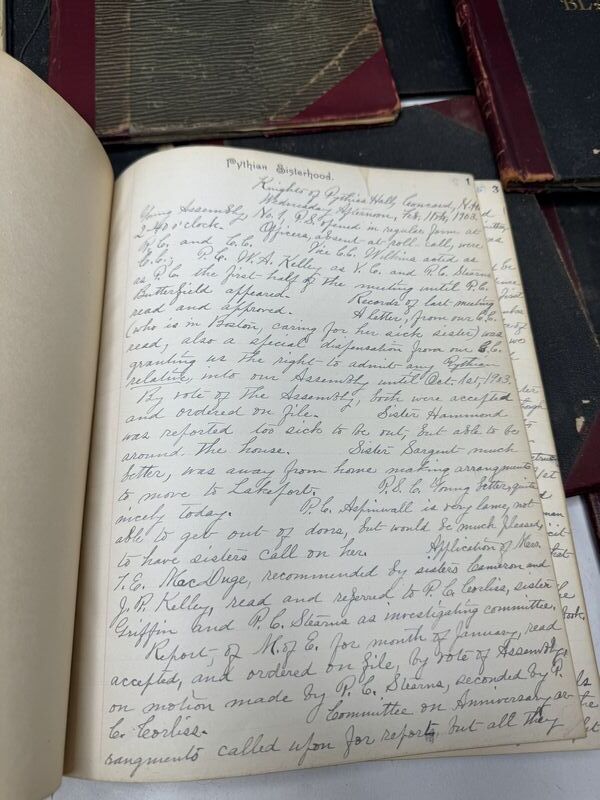 BL
Pythian Sisterhood.
1
3
Knights of Pythias Hall, Concord, N.H.
Wednesday Afternoon, Feb. 1903.
Young Assembly No. 1, P.S. opened in regular form at
2-40 o'clock. Officers, absent at roll call, were
P.C. and C.C. Vice C.C. Willins acted as
C.C.; P.C. W.A. Kelley as V.C. and P.C. Stearns
as P.C. the first half of the meeting until P.C.
Butterfield appeared. Records of last meeting
read and approved. A letter, from our C.C.
(who is in Boston, caring for her sick sister) was
read, also a special dispensation from our G.C.
granting us the right to admit any Pythian
relative, into our Assembly until Oct. 1st, 1903.
By vote of the Assembly, both were accepted
and ordered on file. Sister Hammond
was reported too sick to be out, but able to be
around the house. Sister Sargent much
better, was away from home making arrangments
to move to Lakeport. P.S.C. Young better, quite
nicely today. P.C. Aspinwall is very lame, not
able to get out of doors, but would be much pleased
to have sisters call on her. Application of Mrs.
T.E. MacDuge, recommended by sisters Cameron and
J.P. Kelley, read and referred to P.C. Corliss, sister
Griffin and P.C. Stearns as investigating committee.
Report, of M. of E. for month of January, read
accepted, and ordered on file, by vote of Assembly
on motion made by P.C. Stearns, seconded by P.
C. Corliss. Committee on Anniversary ar-
rangments called upon for report, but all they